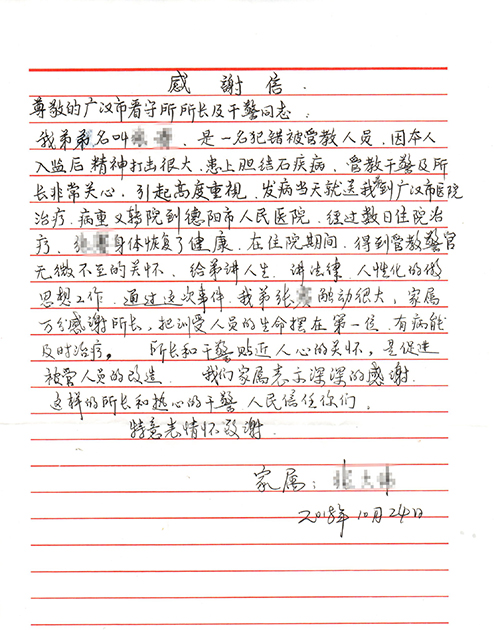 感謝信
尊敬的广汉市看守所所长及干警同志:
我弟弟名叫 是一名犯错被管教人员,因本人
入监后精神打击很大,患上胆结石疾病,管教干警及所
长非常关心,引起高度重视,发病当天就送我弟到广汉市医院
治疗.病重又转院到德阳市人民医院,经过数日住院治
疗. 身体恢复了健康.在住院期间,得到管教警官
无微不至的关怀.给弟讲人生.讲法律.人性化的做
思想工作.通过这次事件.我弟张 触动很大,家属
万分感谢所长,把训受人员的生命摆在第一位.有病能
及时治疗。 所长和干警贴近人心的关怀,是促进
被管人员的改造 我们家属表示深深的感谢.
这样的所长和热心的干警 人民信任你们。
特意表情怀致谢.
家属:
2018年10月24日